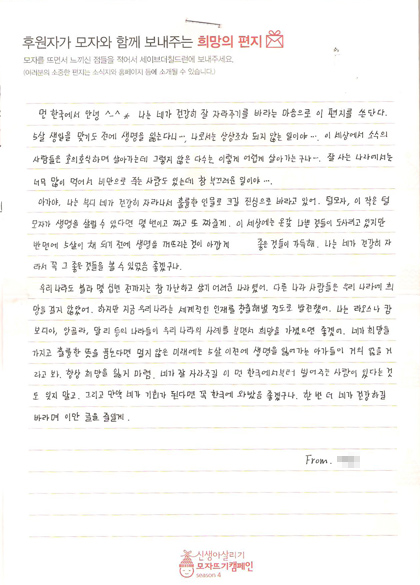 후원자가 모자와 함께 보내주는 희망의 편지
모자를 뜨면서 느끼신 점들을 적어서 세이브더칠드런에 보내주세요.
(여러분의 소중한 편지는 소식지와 홈페이지 등에 소개될 수 있습니다.)
먼 한국에서 안녕 ^^* 나는 네가 건강히 잘 자라주기를 바라는 마음으로 이 편지를 쓴단다.
5살 생일을 맞기도 전에 생명을 잃는다니…, 나로서는 상상조차 되지 않는 일이야…. 이 세상에서 소수의
사람들은 호의호식하며 살아가는데 그렇지 않은 다수는 이렇게 어렵게 살아가는구나…. 잘 사는 나라에서는
너무 많이 먹어서 비만으로 죽는 사람도 있는데 참 부끄러운 일이야….
아가야. 나는 부디 네가 건강히 자라나서 훌륭한 인물로 크길 진심으로 바라고 있어. 털모자, 이 작은 털
모자가 생명을 살릴 수 있다면 몇 번이고 짜고 또 짜줄게. 이 세상에는 온갖 나쁜 것들이 도사리고 있지만
반면에 5살이 채 되기 전에 생명을 꺼뜨리는 것이 아깝게 좋은 것들이 가득해. 나는 네가 건강히 자
라서 꼭 그 좋은 것들을 볼 수 있었음 좋겠구나.
우리나라도 불과 몇 십년 전까지는 참 가난하고 살기 어려운 나라였어. 다른 나라 사람들은 우리 나라에 희
망을 걸지 않았어. 하지만 지금 우리나라는 세계적인 인재를 창출해낼 정도로 발전했어. 나는 라오스나 캄
보디아, 앙골라, 말리 등의 나라들이 우리 나라의 사례를 보면서 희망을 가졌으면 좋겠어. 네가 희망을
가지고 훌륭한 뜻을 품는다면 멀지 않은 미래에는 5살 이전에 생명을 잃어가는 아가들이 거의 없을 거
라고 봐. 항상 희망을 잃지 마렴. 네가 잘 자라주길 이 먼 한국에서부터 빌어주는 사람이 있다는 것
도 잊지 말고. 그리고 만약 네가 기회가 된다면 꼭 한국에 와봤음 좋겠구나. 한 번 더 네가 건강하길
바라며 이만 글을 줄일게.
From.
신생아살리기
모자뜨기캠페인
season 4